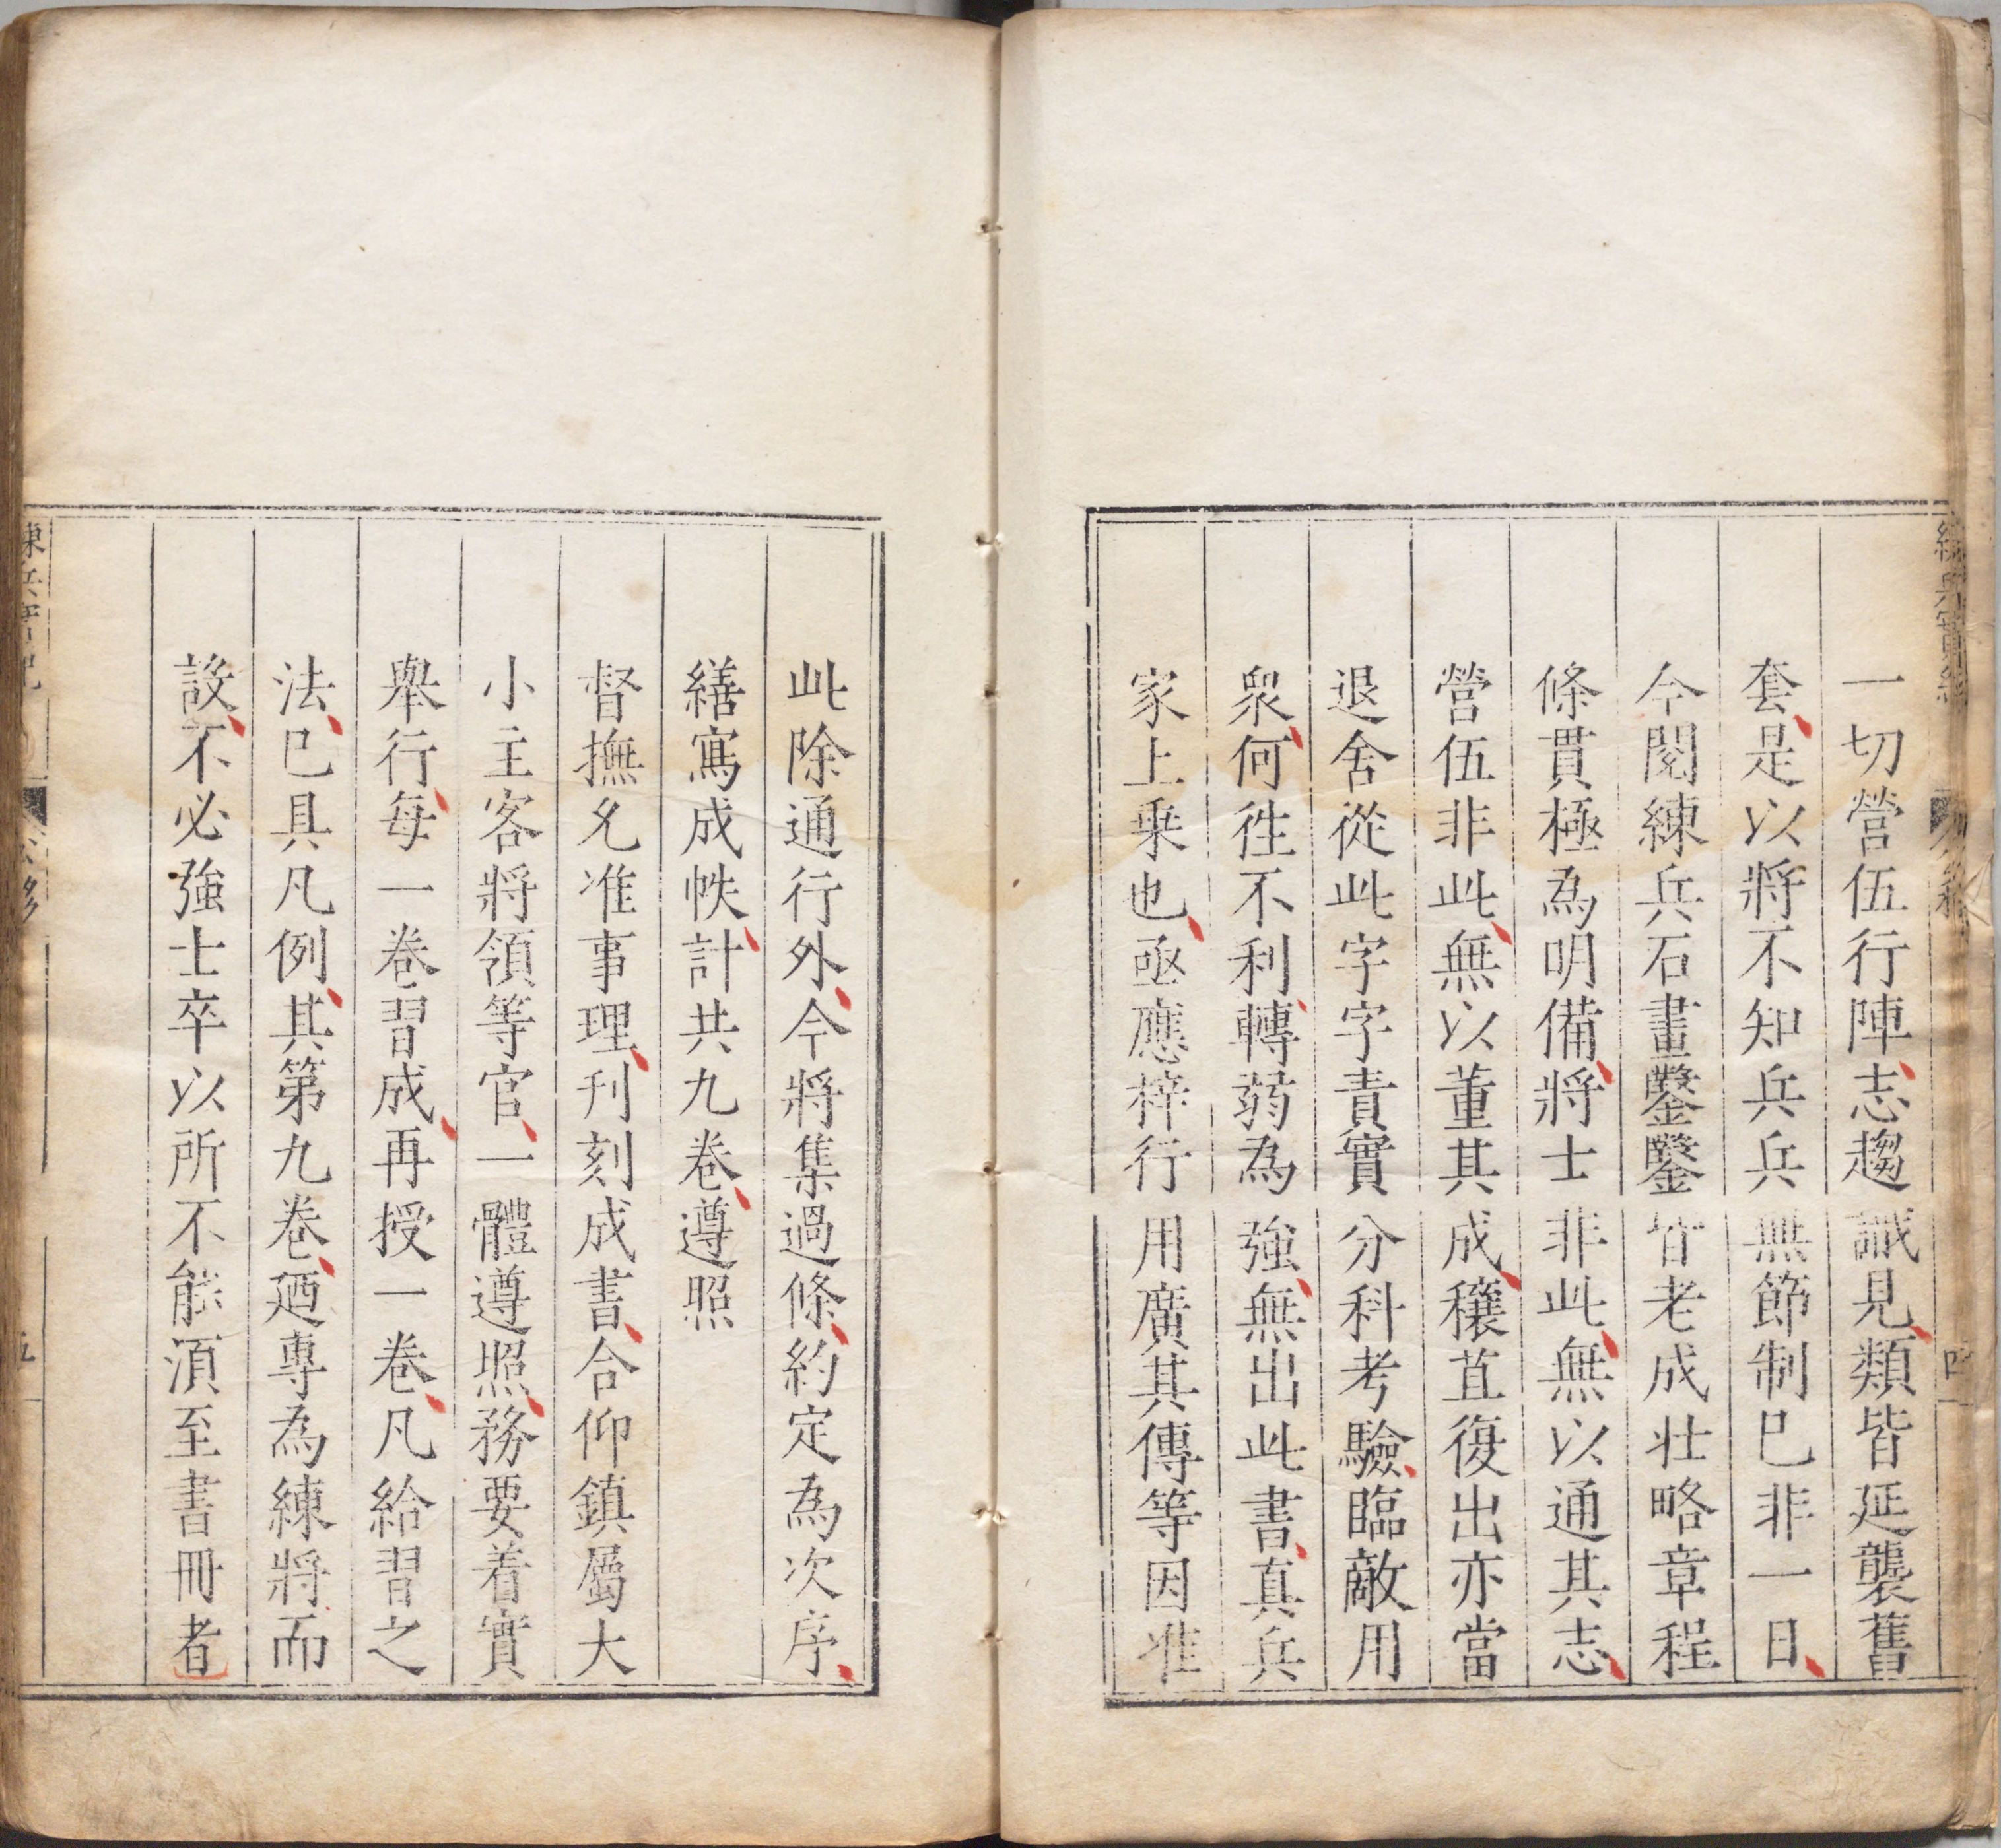 一切營伍行陣志趨識見類皆延襲舊
套是以將不知兵兵無節制已非一日
今閱練兵石畫鑿鑿皆老成壯略章程
條貫極為明備將士非此無以通其志
營伍非此無以董其成穰苴復出亦當
退舍從此字字責實分科考驗臨敵用
衆何徃不利轉弱為強無出此書真兵
家上乗也亟應梓行用廣其傳等因准
此除通行外今將集過條約定為次序
繕寫成帙計共九卷遵照
督撫允准事理刋刻成書合仰鎮屬大
小主客將領等官一體遵照務要着實
舉行每一卷習成再授一卷凡給習之
法已具凡例其第九卷廼專為練將而
設不必強士卒以所不能湏至書冊者